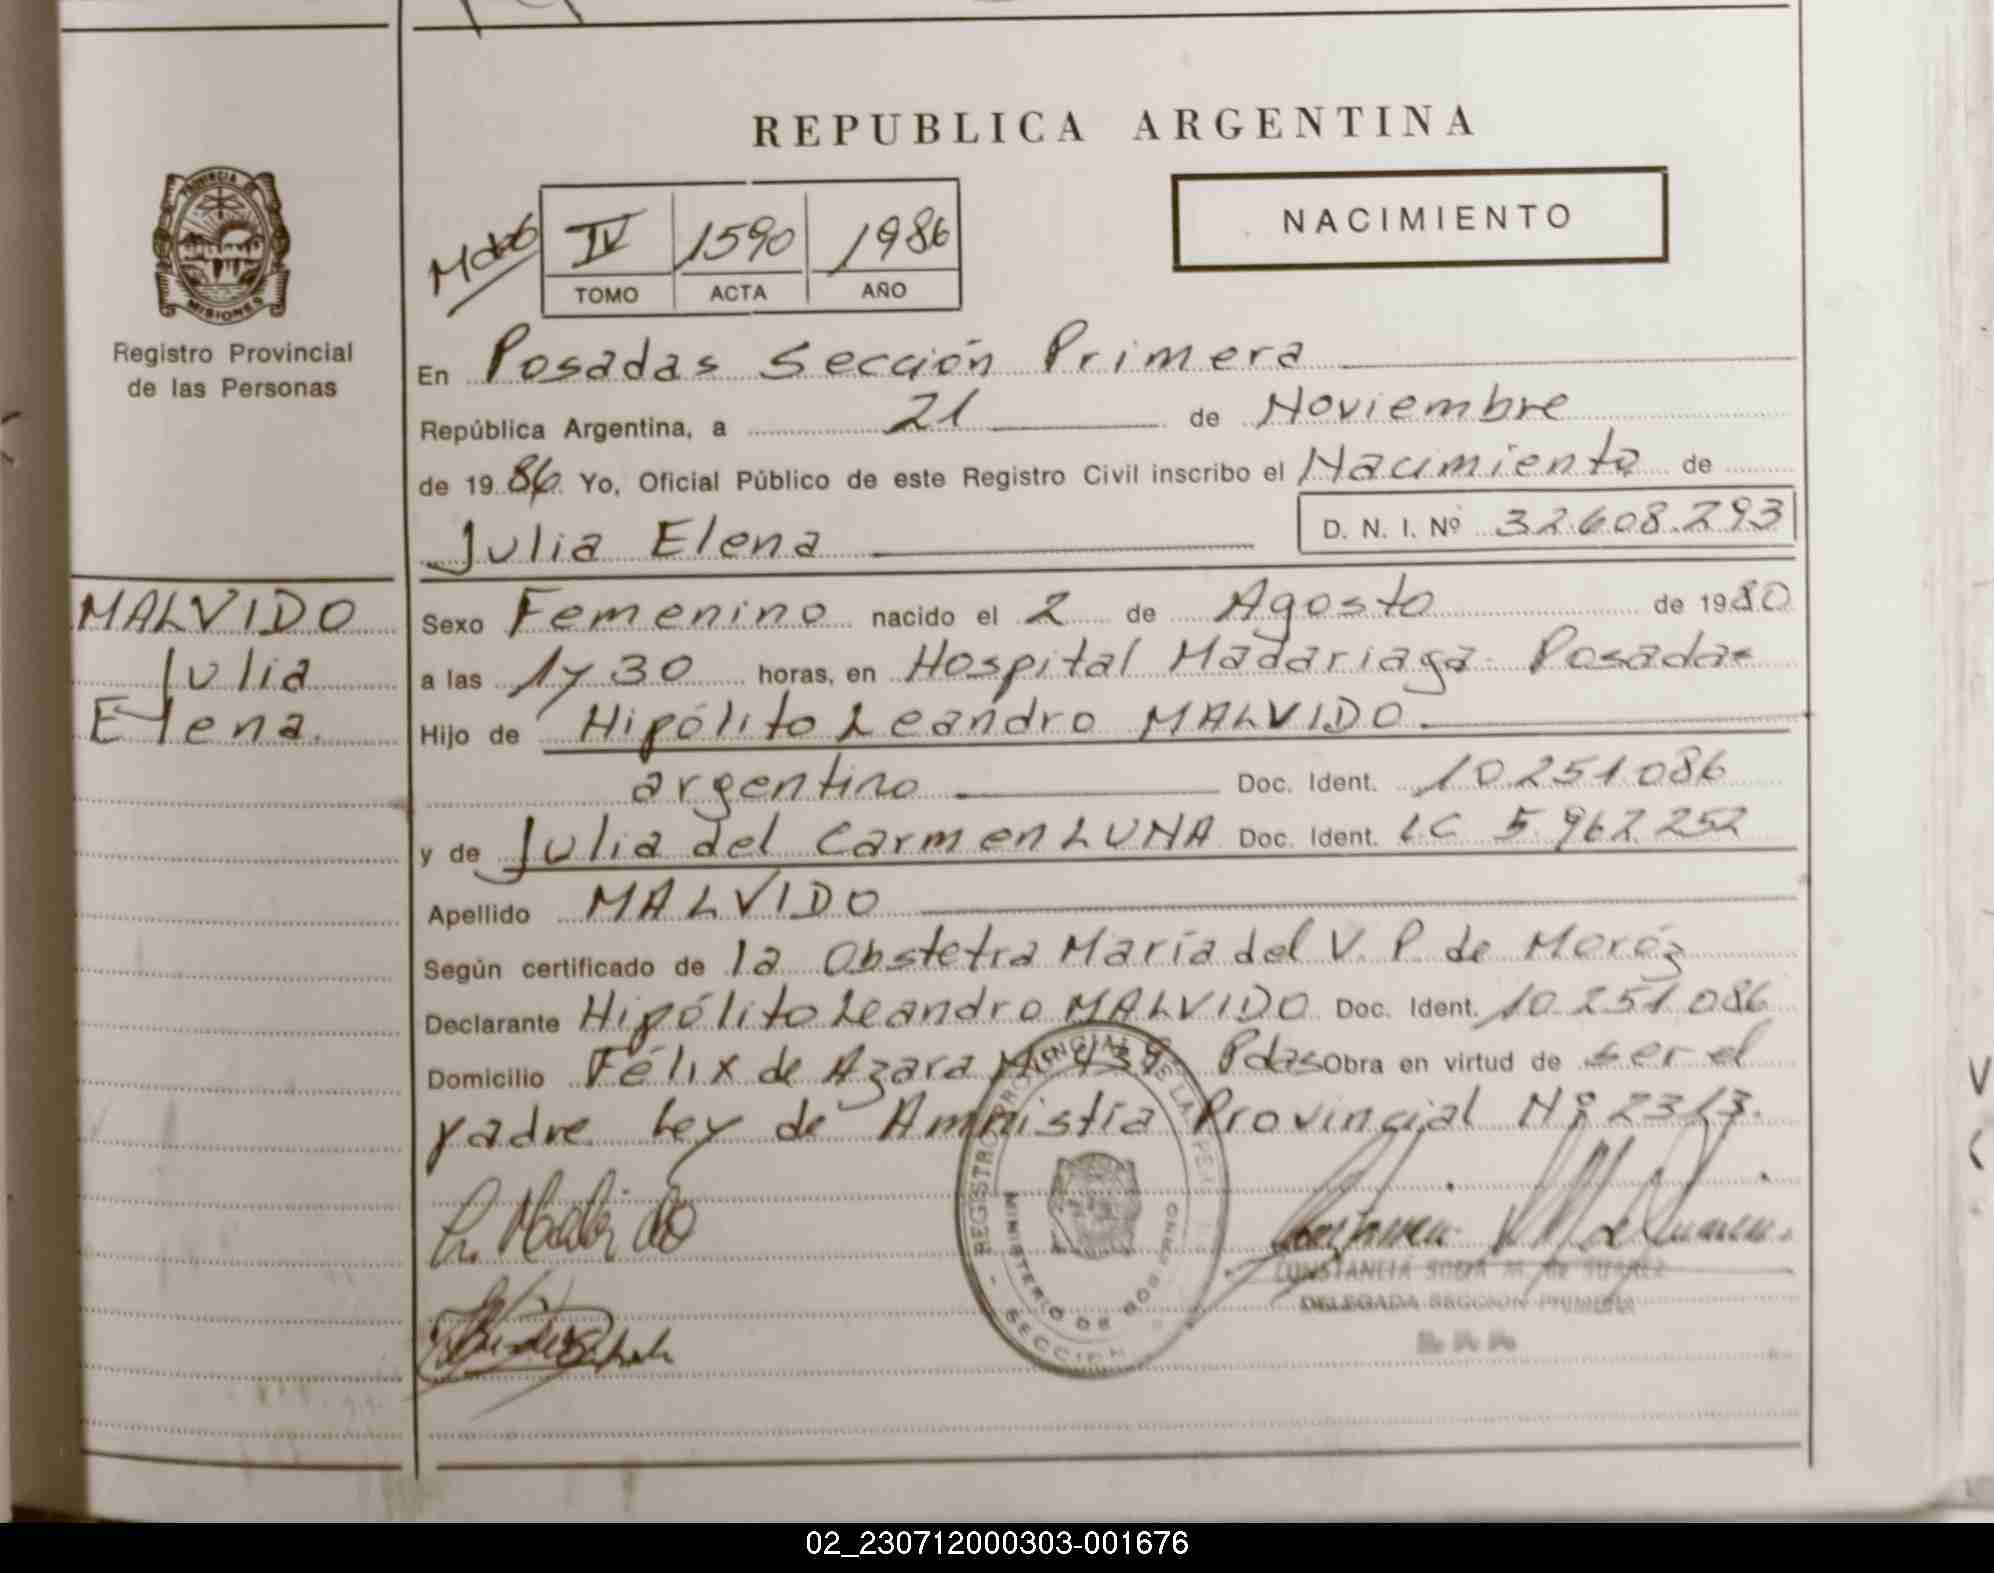 REPUBLICA ARGENTINA
PROVINCIA DE MISIONES
Registro Provincial
de las Personas
NACIMIENTO
IV 1590 1986
TOMO ACTA AÑO
En Posadas Sección Primera
República Argentina, a 21 de Noviembre
de 1986 Yo, Oficial Público de este Registro Civil inscribo el Nacimiento de
Julia Elena D. N. I. Nº 32.608.293
MALVIDO
Julia
Elena.
Sexo Femenino nacido el 2 de Agosto de 1980
a las 1 y 30 horas, en Hospital Madariaga Posadas
Hijo de Hipólito Leandro MALVIDO
argentino Doc. Ident. 10.251.086
y de Julia del Carmen LUNA Doc. Ident. LC 5.962.252
Apellido MALVIDO
Según certificado de la Obstetra María del V. P. de
Declarante Hipólito Leandro MALVIDO Doc. Ident. 10.251.086
Domicilio Félix de Azara Pdas Obra en virtud de ser el
padre Ley de Amnistía Provincial Nº 2313.
REGISTRO PROVINCIAL DE LAS PER
MINISTERIO DE GOBIERNO
SECCION
CONSTANCIA SOSA M. de SUAREZ
DELEGADA SECCION PRIMERA
02_230712000303-001676